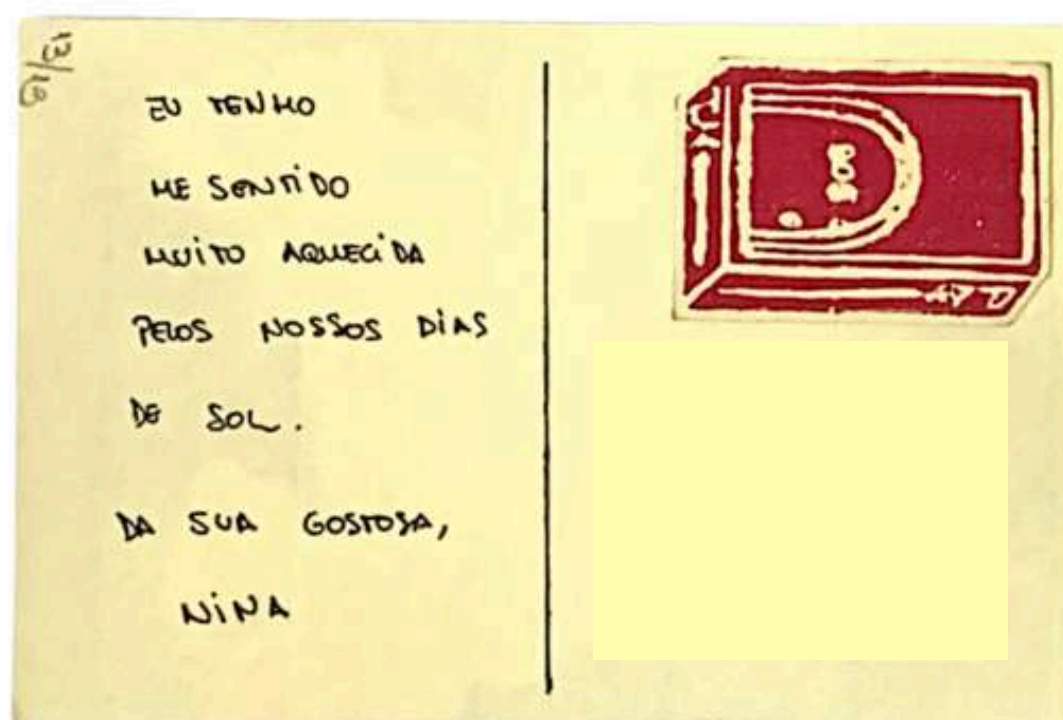 13/13
EU TENHO
ME SENTIDO
MUITO AQUECIDA
PELOS NOSSOS DIAS
DE SOL.
DA SUA GOSTOSA,
NINA